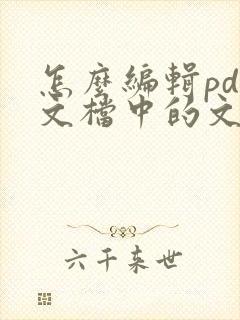 怎麼編輯pd
文檔中的文
六千来世